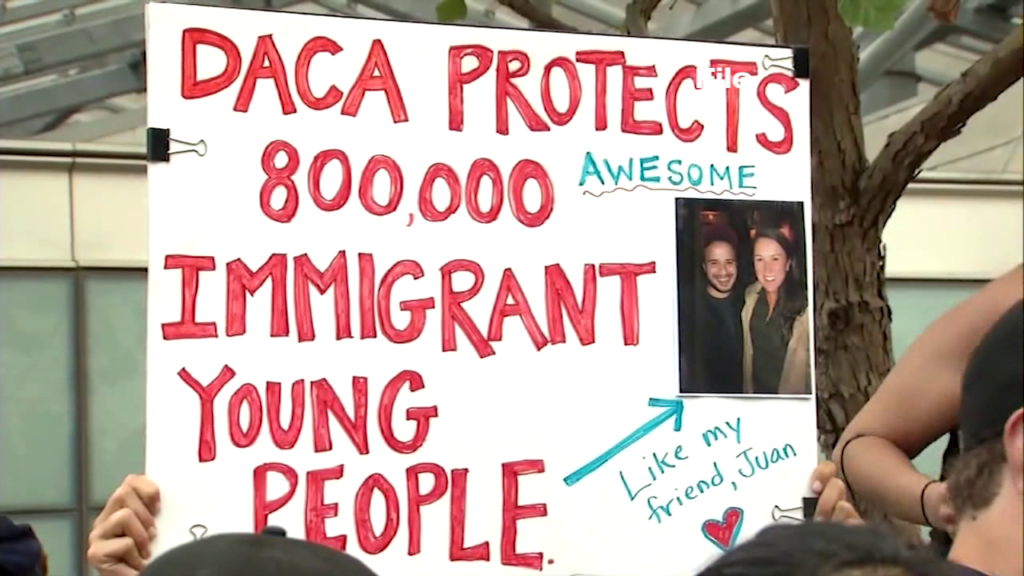 DACA PROTECTS
File
800,000 AWESOME
IMMIGRANT
YOUNG
PEOPLE.
Like my
friend, Juan